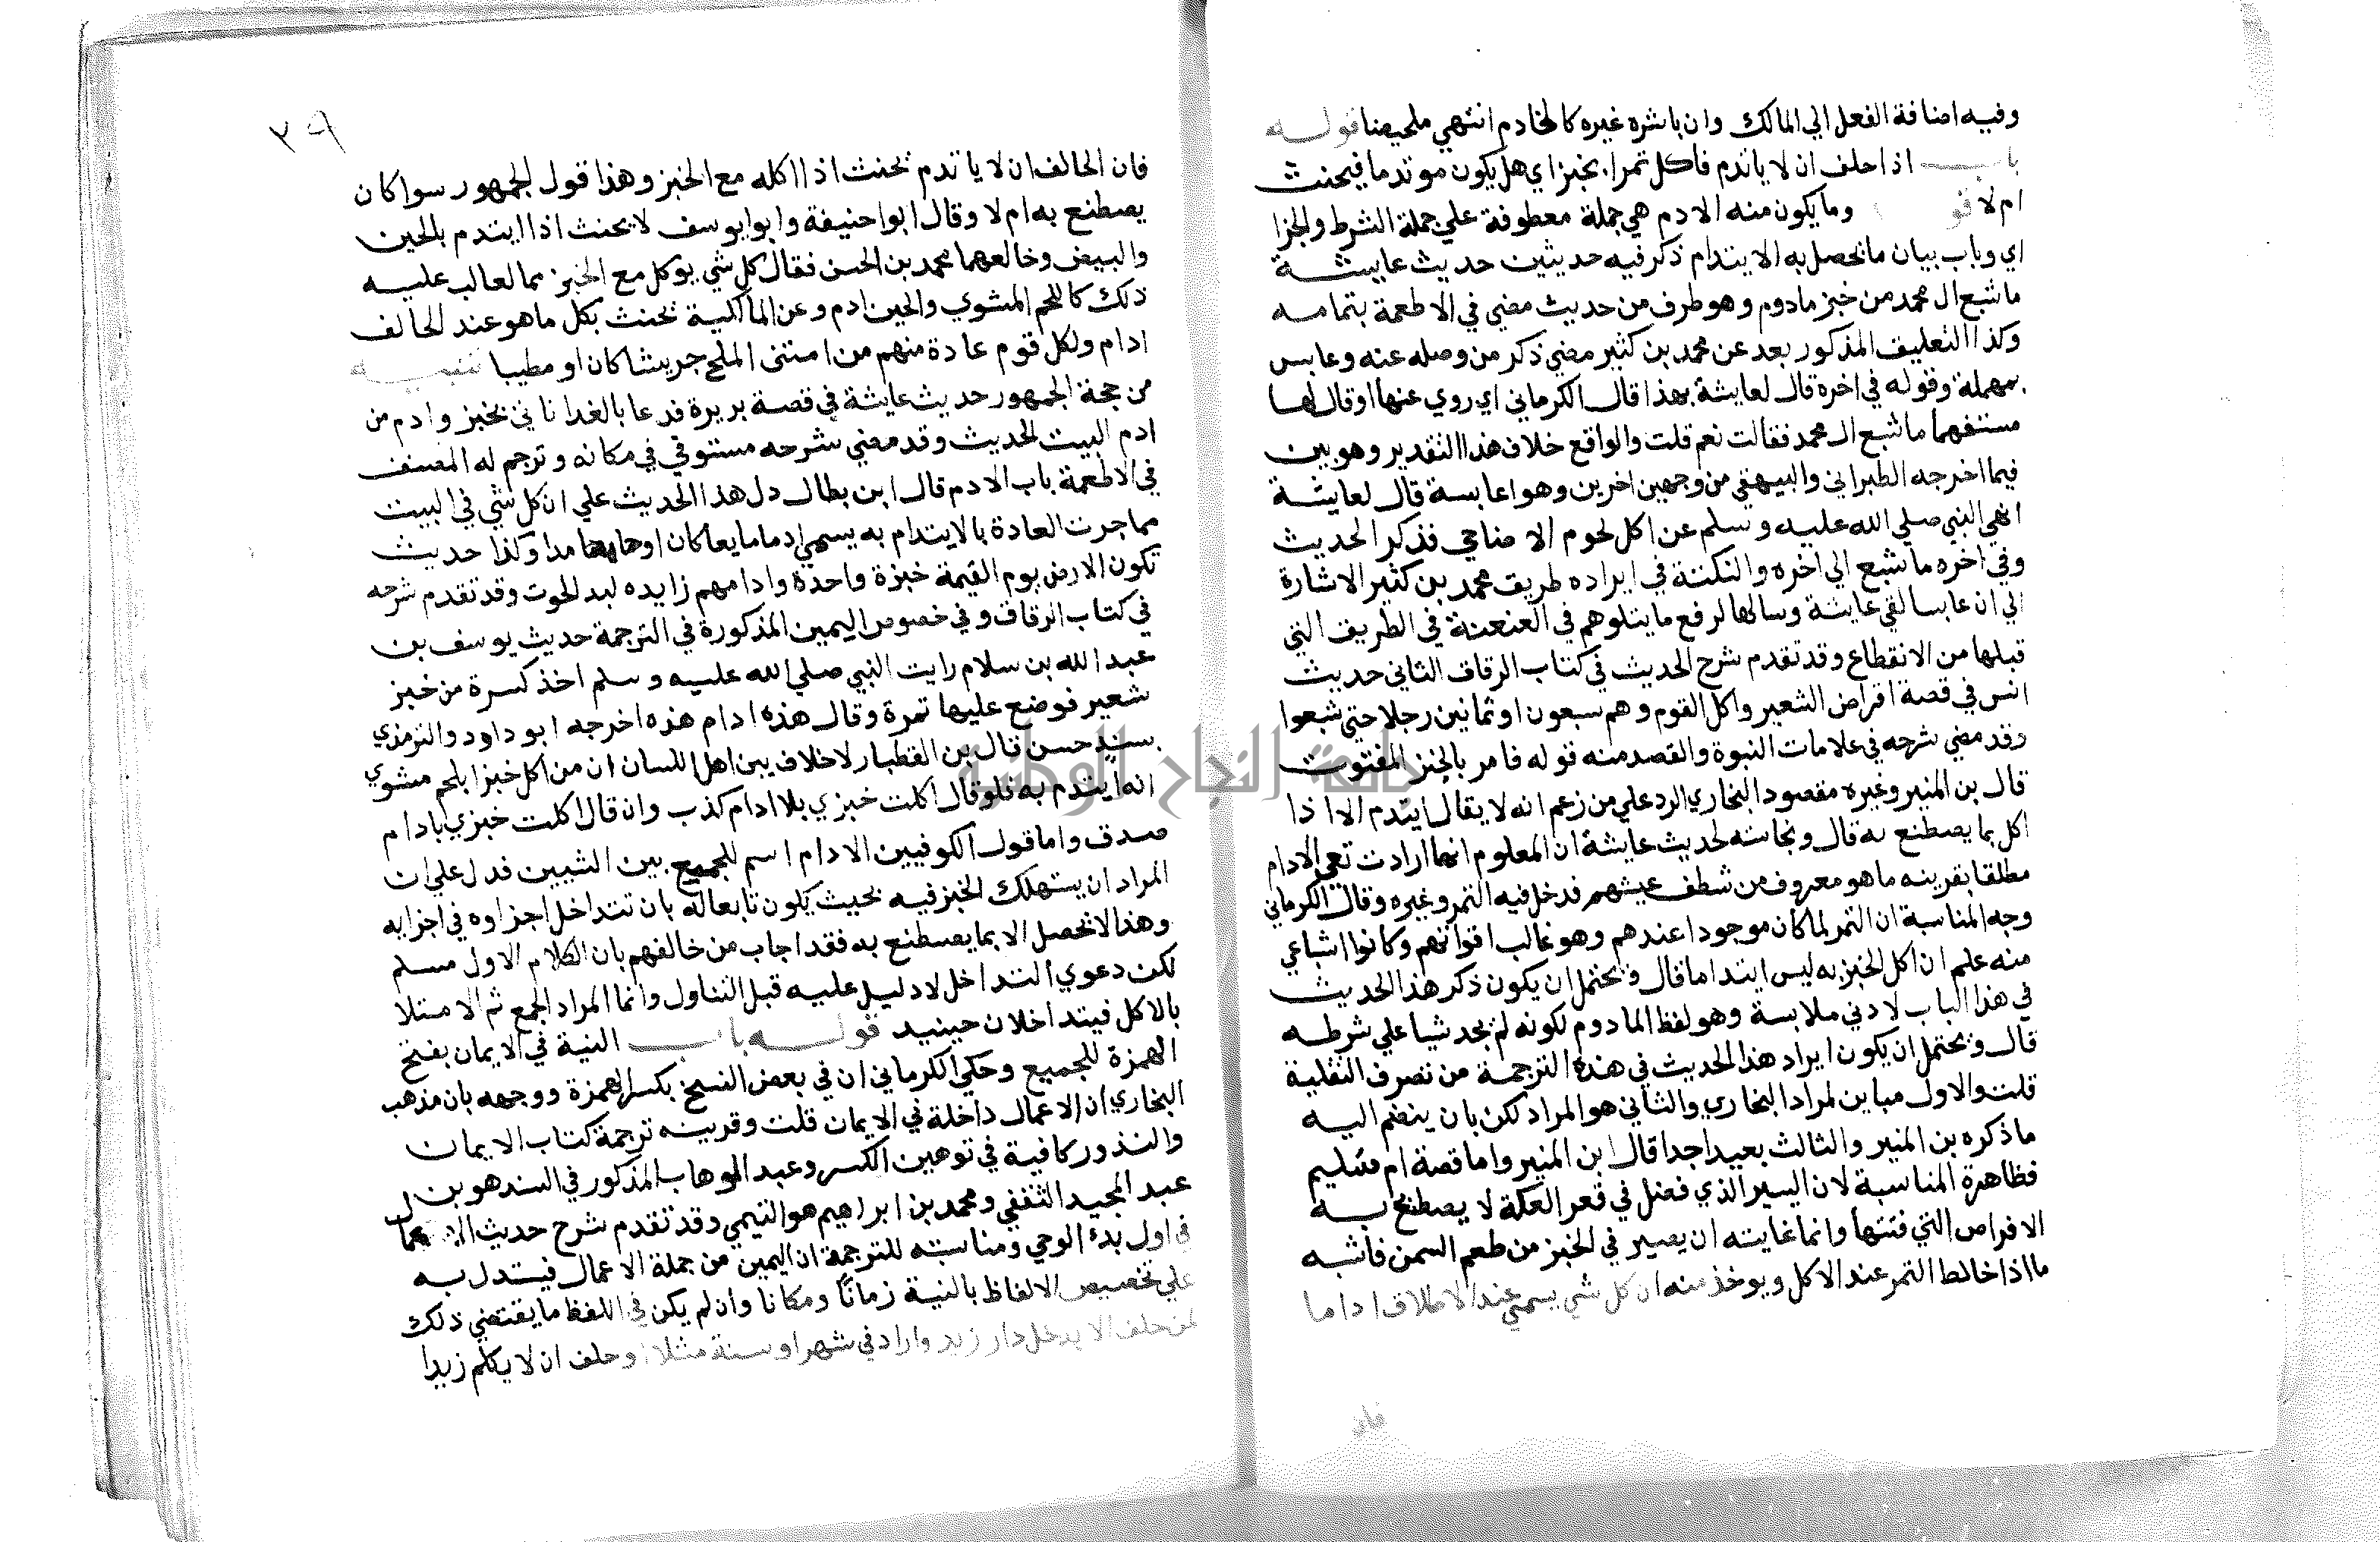 وفيه اضافة الفعل الي المالك وان باشره غيره كالخادم انتهي ملخيصنا قوله
باب اذا حلف ان لا ياتدم فاكل تمرا بخبز اي هل يكون موتدما فيحنث
ام لا قو وما يكون منه الادم هي جملة معطوفة علي جملة الشرط والجزا
اي وباب بيان ما يحصل به الايتدام ذكر فيه حديثين حديث عايشة
ما شبع ال محمد من خبز مادوم وهو طرف من حديث مضي في الاطعمة بتمامه
وكذا التعليق المذكور بعد عن محمد بن كثير مضي ذكر من وصله عنه وعابس
بمهملة وقوله في اخره قال لعايشة بهذا قال الكرماني اي روي عنها او قال لها
مستفهما ما شبع ال محمد فقالت نعم قلت والواقع خلاف هذا التقدير وهو بين
فيما اخرجه الطبراني والبيهقي من وجهين اخرين وهو ا عابسة قال لعايشة
انهي النبي صلي الله عليه وسلم عن اكل لحوم الاضاحي فذكر الحديث
وفي اخره ما شبع الي اخره والنكتة في ايراده طريق محمد بن كثير الاشارة
الي ان عابسا لقي عايشة وسالها لرفع ما يتلوهم في العنعنة في الطريق التي
قبلها من الانقطاع وقد تقدم شرح الحديث في كتاب الرقاق الثاني حديث
انس في قصة اقراص الشعير واكل القوم وهم سبعون او ثمانين رجلا حتي شبعوا
وقد مضي شرحه في علامات النبوة والقصد منه قوله فامر بالخبز المفتوت
قال بن المنير وغيره مقصود البخاري الرد علي من زعم انه لا يقال ايتدم الا اذا
اكل بما يصطنع به قال ومجاسته لحديث عايشة ان المعلوم انها ارادت نفي الادام
مطلقا بقرينه ما هو معروف من شظف عيشهم فدخل فيه التمر وغيره وقال الكرماني
وجه المناسبة ان التمر لما كان موجودا عندهم وهو غالب اقواتهم وكانوا اشباعي
منه علم ان اكل الخبز به ليس ايتداما قال ويحتمل ان يكون ذكر هذا الحديث
في هذا الباب لادني ملابسة وهو لفظ المادوم لكونه لم يجد شيا علي شرطه
قال ويحتمل ان يكون ايراد هذا الحديث في هذه الترجمة من تصرف النقلية
قلت والاول مباين لمراد البخاري والثاني هو المراد لكن بان ينضم اليه
ما ذكره بن المنير والثالث بعيد اجدا قال ابن المنير واما قصة ام سليم
فظاهرة المناسبة لان اليسير الذي فضل في قعر العكة لا يصطنع به
الاقراص التي فتتها وانما غايته ان يصير في الخبز من طعم السمن فاشبه
ما اذا خالط التمر عند الاكل ويوخذ منه ان كل شي يسمي عند الاطلاق اداما
فان
٣٩
فان الحالف ان لا ياتدم يحنث اذا اكله مع الخبز وهذا قول الجمهور سوا كان
يصطنع به ام لا وقال ابوا حنيفة وابوا يوسف لا يحنث اذا ايتدم بالجبن
والبيض وخالعهما محمد بن الحسن فقال كل شي يوكل مع الخبز مما لعالب عليه
ذلك كاللحم المشوي والجبن ادم وعن المالكية يحنث بكل ما هو عند الحالف
ادام ولكل قوم عادة منهم من استثني الملح جريشا كان او مطيبا تنبيه
من حجة الجمهور حديث عايشة في قصة بريرة فدعا بالغدا فاتي بخبز وادم من
ادم البيت الحديث وقد مضي شرحه مستوقي في مكانه وترجم له المصنف
في الاطعمة باب الادم قال ابن بطال دل هذا الحديث علي ان كل شي في البيت
مما جرت العادة بالايتدام به يسمي ادما مايعا كان او جامدا وكذا حديث
تكون الارض يوم القيمة خبزة واحدة وادامهم زايده لبد الحوت وقد تقدم شرحه
في كتاب الرقاق وفي خصوص اليمين المذكورة في الترجمة حديث يوسف بن
عبد الله بن سلام رايت النبي صلي الله عليه وسلم اخذ كسرة من خبز
شعير فوضع عليها تمرة وقال هذه ادام هذه اخرجه ابو داود والترمذي
بسند حسن قال بن القطبار لا خلاف بين اهل اللسان ان من اكل خبزا بلحم مشوي
انه ايتدم به فلو قال اكلت خبزي بلا ادام كذب وان قال اكلت خبزي بادام
صدق واما قول الكوفيين الادام اسم للجميع بين الشيين فدل علي ان
المراد ان يستهلك الخبز فيه بحيث يكون تابعا له بان تتداخل اجزاوه في اجزايه
وهذا لا يحصل الا بما يصطنع به فقد اجاب من خالفهم بان الكلام الاول مسلم
لكن دعوي التداخل لا دليل عليه قبل التناول وانما المراد الجمع ثم الاستلا
بالاكل فيتداخلان حينيد قوله باب النية في الايمان بفتح
الهمزة للجميع وحكي الكرماني ان في بعض النسخ بكسر الهمزة ووجهه بان مذهب
البخاري ان الاعمال داخلة في الايمان قلت وقرينه ترجمة كتاب الايمان
والنذور كافية في توهين الكسر وعبد الوهاب المذكور في السند هو بن
عبد المجيد الثقفي ومحمد بن ابراهيم هو التيمي وقد تقدم شرح حديث الاعمال
في اول بدء الوحي ومناسبته للترجمة ان اليمين من جملة الاعمال فيستدل به
علي تخصيص الالفاظ بالنية زمانا ومكانا وان لم يكن في اللفظ ما يقتضي ذلك
لمن حلف الا يدخل دار زيد واراد في شهر او سنة مثلا او حلف ان لا يكلم زيدا
جامعة النجاح الوطنية